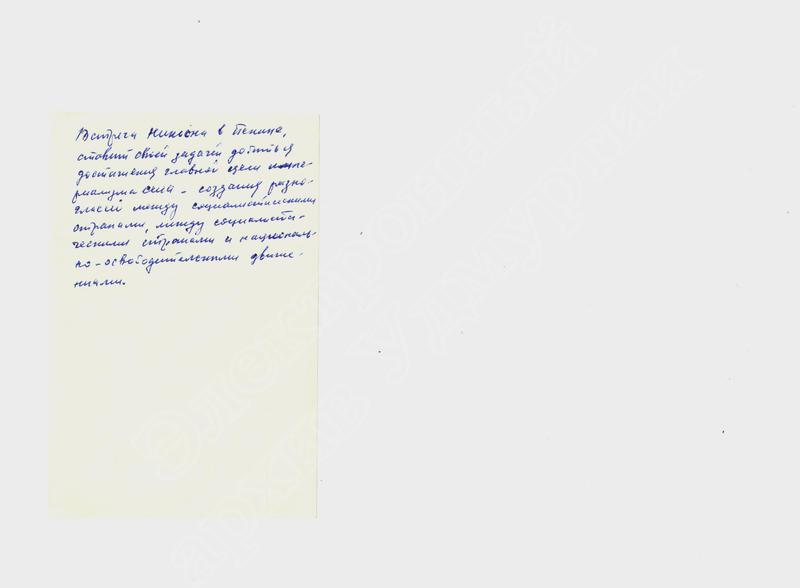 Встреча Никсона в Пекине,
ставит своей задачей добиться
достижения главной цели импе-
риализма сша - создания разно-
гласий между социалистическими
странами, между социалисти-
ческими странами и националь-
но-освободительными движе-
ниями.
Электронный
архив Удмуртии